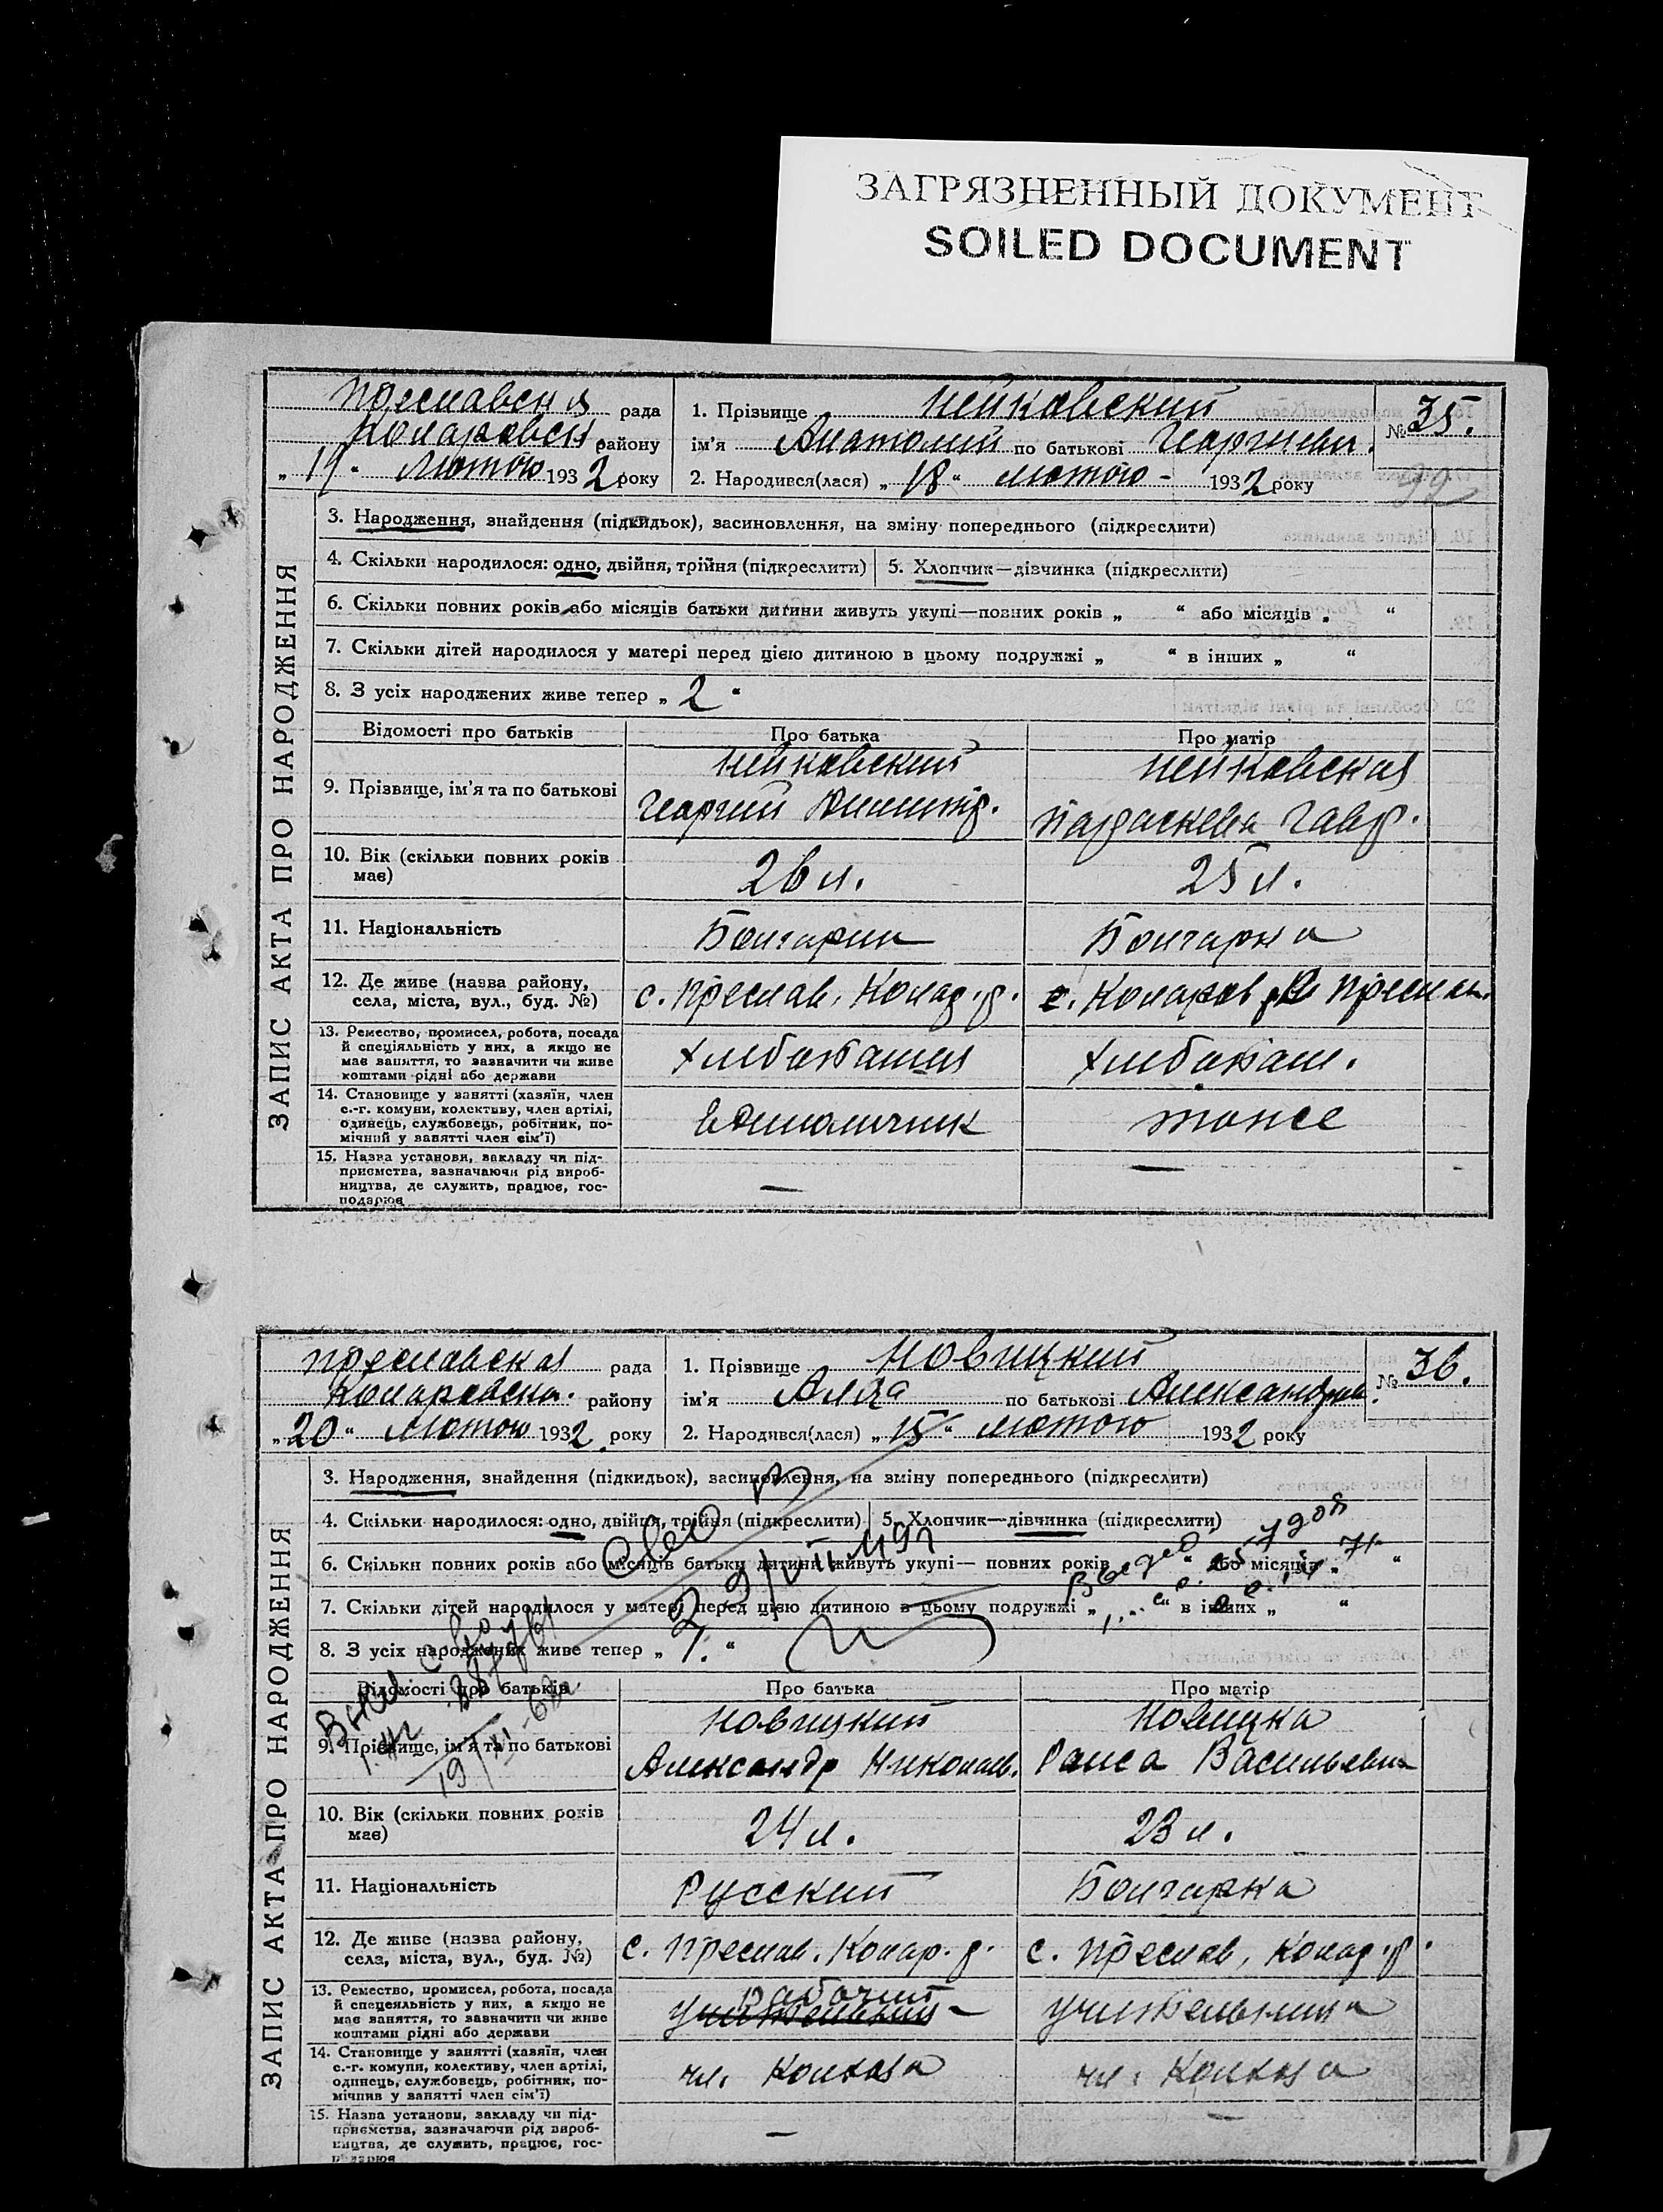 ЗАГРЯЗНЕННЫЙ ДОКУМЕНТ
SOILED DOCUMENT
ЗАПИС АКТА ПРО НАРОДЖЕННЯ
Преславська рада
Коларовск району
„19“ Лютого 1932 року
1. Прізвище Нейковский
ім'я Анатолий по батькові Георгиевич.
№ 35.
2. Народився(лася) „18“ лютого - 1932 року
3. Народження, знайдення (підкидьок), засиновлення, на зміну попереднього (підкреслити)
4. Скільки народилося: одно, двійня, трійня (підкреслити) 5. Хлопчик—дівчинка (підкреслити)
6. Скільки повних років або місяців батьки дитини живуть укупі—повних років „ “ або місяців „ “
7. Скільки дітей народилося у матері перед цією дитиною в цьому подружжі „ “ в інших „ “
8. З усіх народжених живе тепер „2“
Відомості про батьків Про батька Про матір
9. Прізвище, ім'я та по батькові
Нейковский
Георгий Димитр.
Нейковская
Параскева Гавр.
10. Вік (скільки повних років
має)
26 л. 25 л.
11. Національність Болгарин Болгарка
12. Де живе (назва району,
села, міста, вул., буд. №)
с. Преслав, Колар. р. с. Коларов р. Преслав.
13. Ремество, промисел, робота, посада
й спеціяльність у них, а якщо не
має заняття, то зазначити чи живе
коштами рідні або держави
Хлебопашец Хлебопаш.
14. Становище у занятті (хазяїн, член
с.-г. комуни, колективу, член артілі,
одинець, службовець, робітник, по-
мічний у занятті член сім'ї)
единоличник тоже
15. Назва установи, закладу чи під-
приємства, зазначаючи рід вироб-
ництва, де служить, працює, гос-
подарює
— —
ЗАПИС АКТА ПРО НАРОДЖЕННЯ
Преславская рада
Коларовск. району
„20“ Лютого 1932 року
1. Прізвище Новицкий
ім'я Алла по батькові Александров.
№ 36.
2. Народився(лася) „15“ лютого 1932 року
3. Народження, знайдення (підкидьок), засиновлення, на зміну попереднього (підкреслити)
4. Скільки народилося: одно, двійня, трійня (підкреслити) 5. Хлопчик—дівчинка (підкреслити)
6. Скільки повних років або місяців батьки дитини живуть укупі— повних років „ “ або місяців „ “
7. Скільки дітей народилося у матері перед цією дитиною в цьому подружжі „ “ в інших „ “
8. З усіх народжених живе тепер „1.“
Відомості про батьків Про батька Про матір
9. Прізвище, ім'я та по батькові
Новицкий
Александр Николаев.
Новицка
Раиса Васильевна
10. Вік (скільки повних років
має)
24 л. 23 л.
11. Національність Русский Болгарка
12. Де живе (назва району,
села, міста, вул., буд. №)
с. Преслав. Колар. р. с. Преслав, Колар. р.
13. Ремество, промисел, робота, посада
й спецеяльність у них, а якщо не
має заняття, то зазначити чи живе
коштами рідні або держави
рабочий учительница
14. Становище у занятті (хазяїн, член
с.-г. комуни, колективу, член артілі,
одинець, службовець, робітник, по-
мічний у занятті член сім'ї)
чл. Колхоза чл. Колхоза
15. Назва установи, закладу чи під-
приємства, зазначаючи рід вироб-
ництва, де служить, працює, гос-
подарює
— —